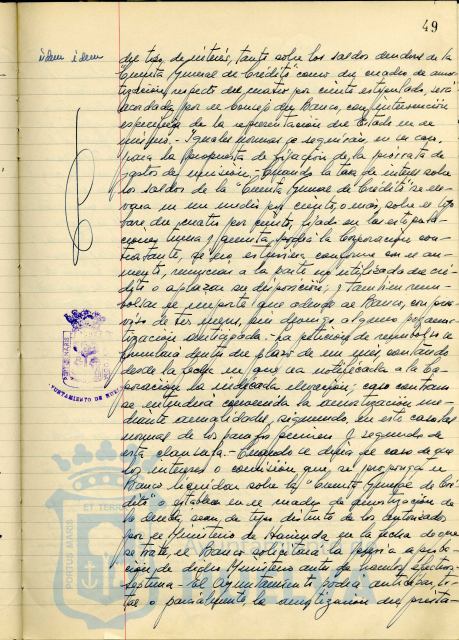 49
idem idem
del tipo de interés, tanto sobre los saldos deudores de la
"Cuenta General de Crédito" como del cuadro de amor
tización, respecto del cuatro por ciento estipulado, será
acordada por el Consejo del Banco, con intervención
específica de la representación del Estado en el
mismo.- Iguales normas se seguirán, en su caso,
para la propuesta de fijación de la prorrata de
gastos de emisión.- Cuando la tasa de interés sobre
los saldos de la "Cuenta General de Crédito" se ele
vara en un medio por ciento, o más, sobre el tipo
del cuatro por ciento, fijado en las estipula
ciones una y cuenta, podrá la Corporación con
tratante, si no estuviera conforme con el au
mento, renunciar a la parte no utilizada del cré
dito o aplazar su disposición; y también reem
bolsar el importe que adeude al Banco, con prea
viso de tres meses, sin devengo alguno por amor
tización anticipada.- La petición de reembolso se
formulará dentro del plazo de un mes, contando
desde la fecha en que sea notificada a la Cor
poración la indicada elevación; caso contrario
se entenderá convenida la amortización me
diante anualidades, siguiendo, en este caso, las
normas de los párrafos primero y segundo de
esta cláusula.- Cuando se diese el caso de que
los intereses o comisión que se proponga el
Banco liquidar sobre la "Cuenta General de Cré
dito" o establecer en el cuadro de amortización de
la deuda, sean de tipo distinto de los autorizados
por el Ministerio de Hacienda en la fecha de que
se trate, el Banco solicitará la previa aproba
ción de dicho Ministerio antes de hacerlos efectivos.
Septima.- El Ayuntamiento podrá anticipar to
tal o parcialmente la amortización del présta-
AYUNTAMIENTO DE
PORTUMARIS
ET TERR